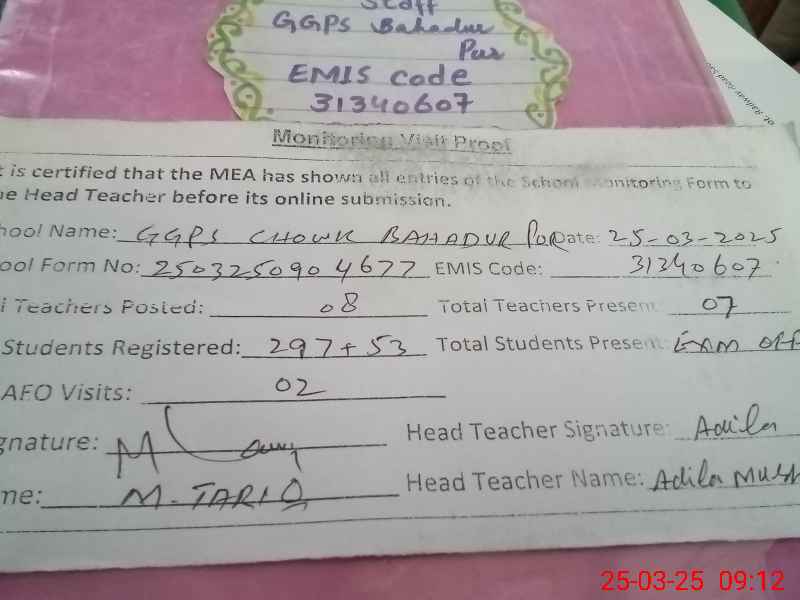 Staff
GGPS Bahadur
Pur
EMIS code
31340607
Monitoring Visit Proof
t is certified that the MEA has shown all entries of the School Monitoring Form to
he Head Teacher before its online submission.
hool Name: GGPS CHOWK BAHADUR PUR Date: 25-03-2025
ool Form No: 2503250904677 EMIS Code: 31340607
l Teachers Posted: 08 Total Teachers Present: 07
Students Registered: 297+53 Total Students Present: EXAM OFF
AEO Visits: 02
gnature: M Head Teacher Signature: Adila
me: M-TARIQ Head Teacher Name: Adila
25-03-25 09:12